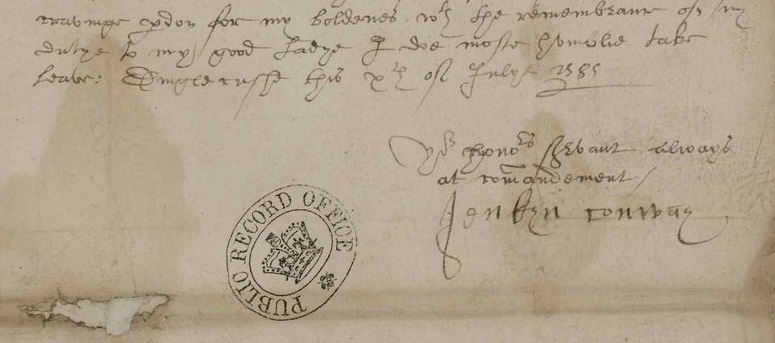 cravinge p̱don for my boldenes wth the remembrance of my
dutye to my good Ladye I doe moste humblie take
leave: Dinglecusshe this xth of Julye 1585
Yor honors servaunt always
at comandement
Jenkyn Conway
PUBLIC RECORD OFFICE